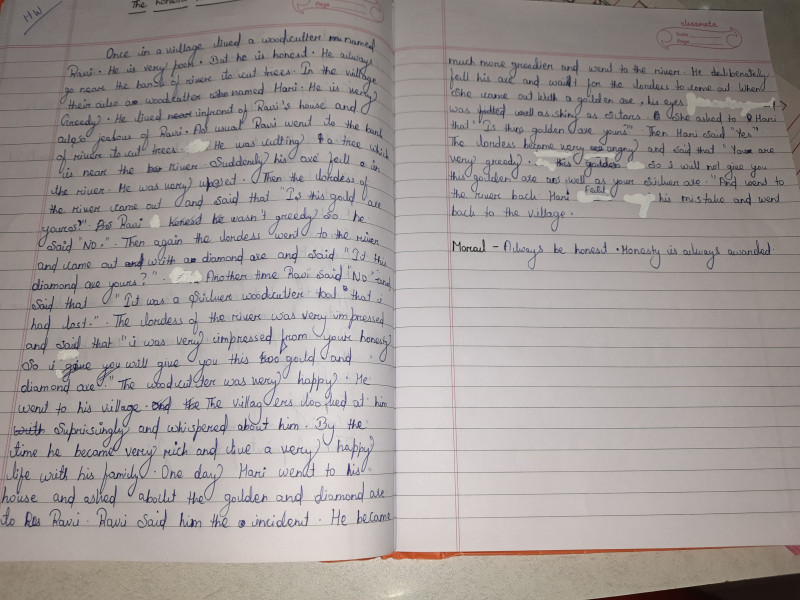 HW
The honest
Page
Once in a village lived a woodcutter named
Ravi. He is very poor. But he is honest. He always
go near the bank of river to cut trees. In the village
their also a woodcutter named Hari. He is very
Greedy. He lived near infront of Ravi's house and
also jealous of Ravi. As usual Ravi went to the bank
of river to cut trees. He was cutting a tree which
is near the river. Suddenly his axe fell in
the river. He was very upset. Then the lordess of
the river came out and said that "Is this gold axe
yours?" Ravi wasn't greedy so he
said "No.". Then again the lordess went to the river
and came out with a diamond axe and said "Is this
diamond axe yours?". Another time Ravi said "No" and
said that "It was a silver woodcutter tool that i
had lost.". The lordess of the river was very impressed
and said that "i was very impressed from your honesty
So i will give you this too gold and
diamond axe." The woodcutter was very happy. He
went to his village. The villagers looked at him
suprisingly and whispered about him. By the
time he became very rich and live a very happy
life with his family. One day Hari went to his
house and asked about the golden and diamond axe
to Ravi. Ravi said him the incident. He became
classmate
Date
Page
much more greedier and went to the river. He deliberately
fell his axe and wait for the lordess to come out when
She came out with a golden axe, his eyes
was as shing as stars. She asked to Hari
that "Is this golden axe yours". Then Hari said "Yes"
The lordess became very angry and said that "You are
very greedy. So i will not give you
this golden axe as well as your silver axe." And went to
the river back Hari Feel his mistake and went
back to the village.
Moral - Always be honest. Honesty is always awarded.